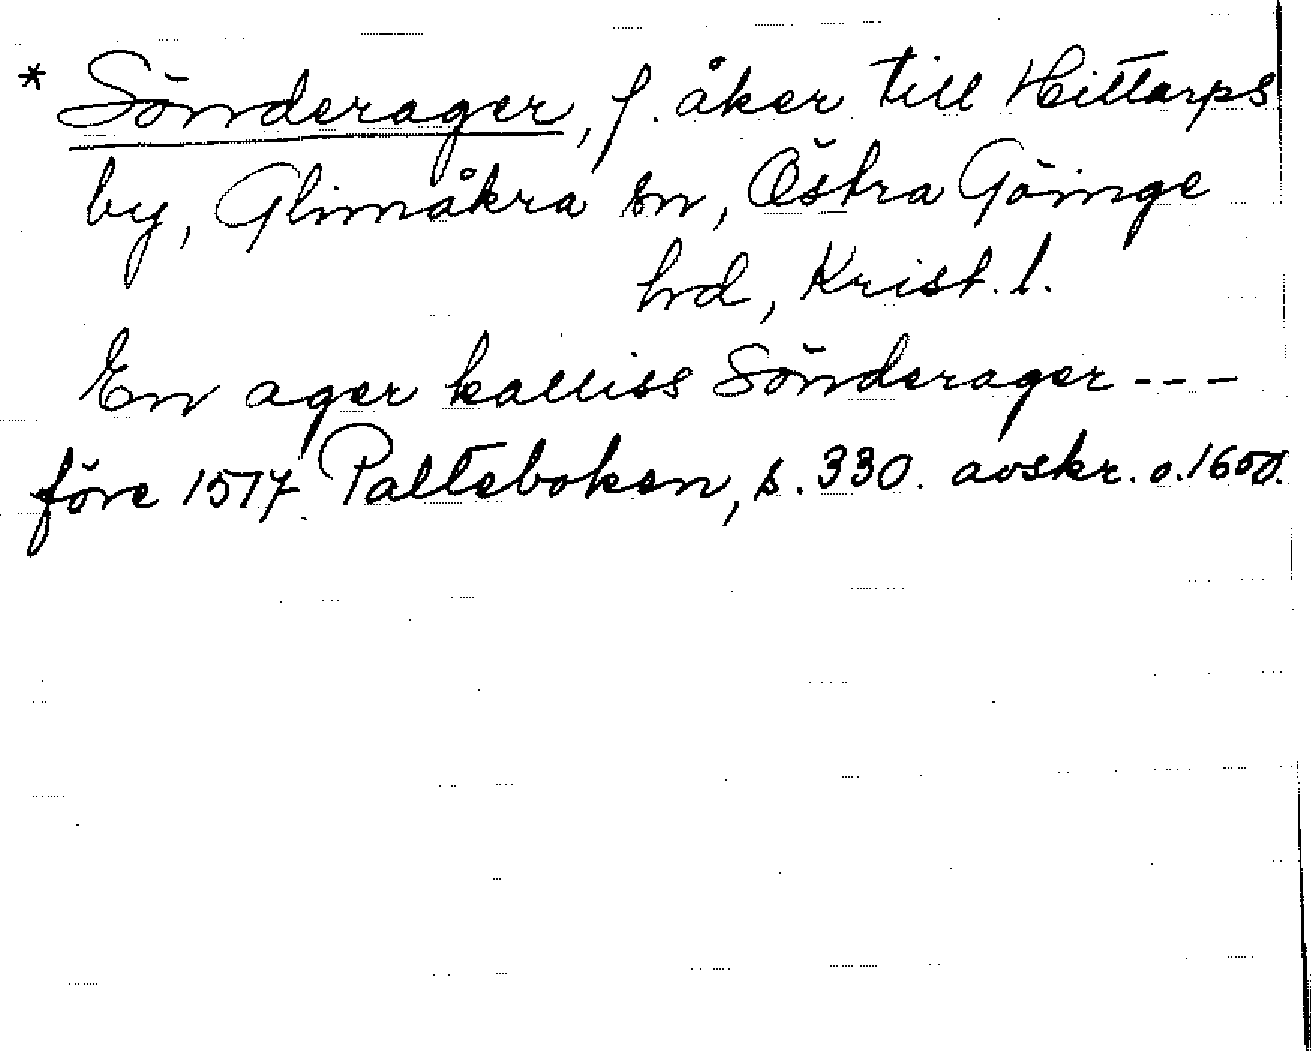 * Sönderager, f. åker till Hittarps
by, Glimåkra sn, Östra Göinge
hrd, Krist. l.
En ager kalliss Sönderager ---
före 1517. Palteboken, s. 330. avskr. o. 1600.